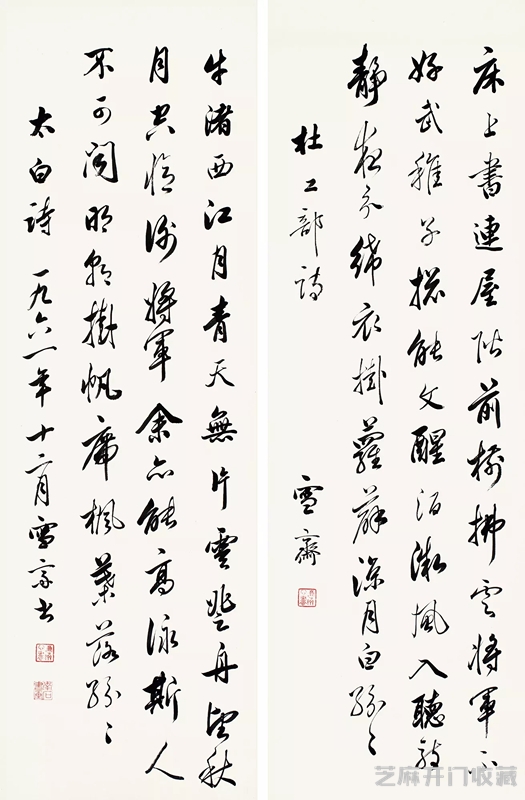 床上書連屋階前樹拂雲將軍不
好武稚子總能文醒酒微風入聽詩
靜夜分絺衣掛蘿薜涼月白紛々
杜工部詩 雪齋
牛渚西江月青天無片雲登舟望秋
月空憶謝將軍余亦能高詠斯人
不可聞明朝掛帆席楓葉落紛々
太白詩 一九六一年十二月雪齋書
芝麻开门收藏